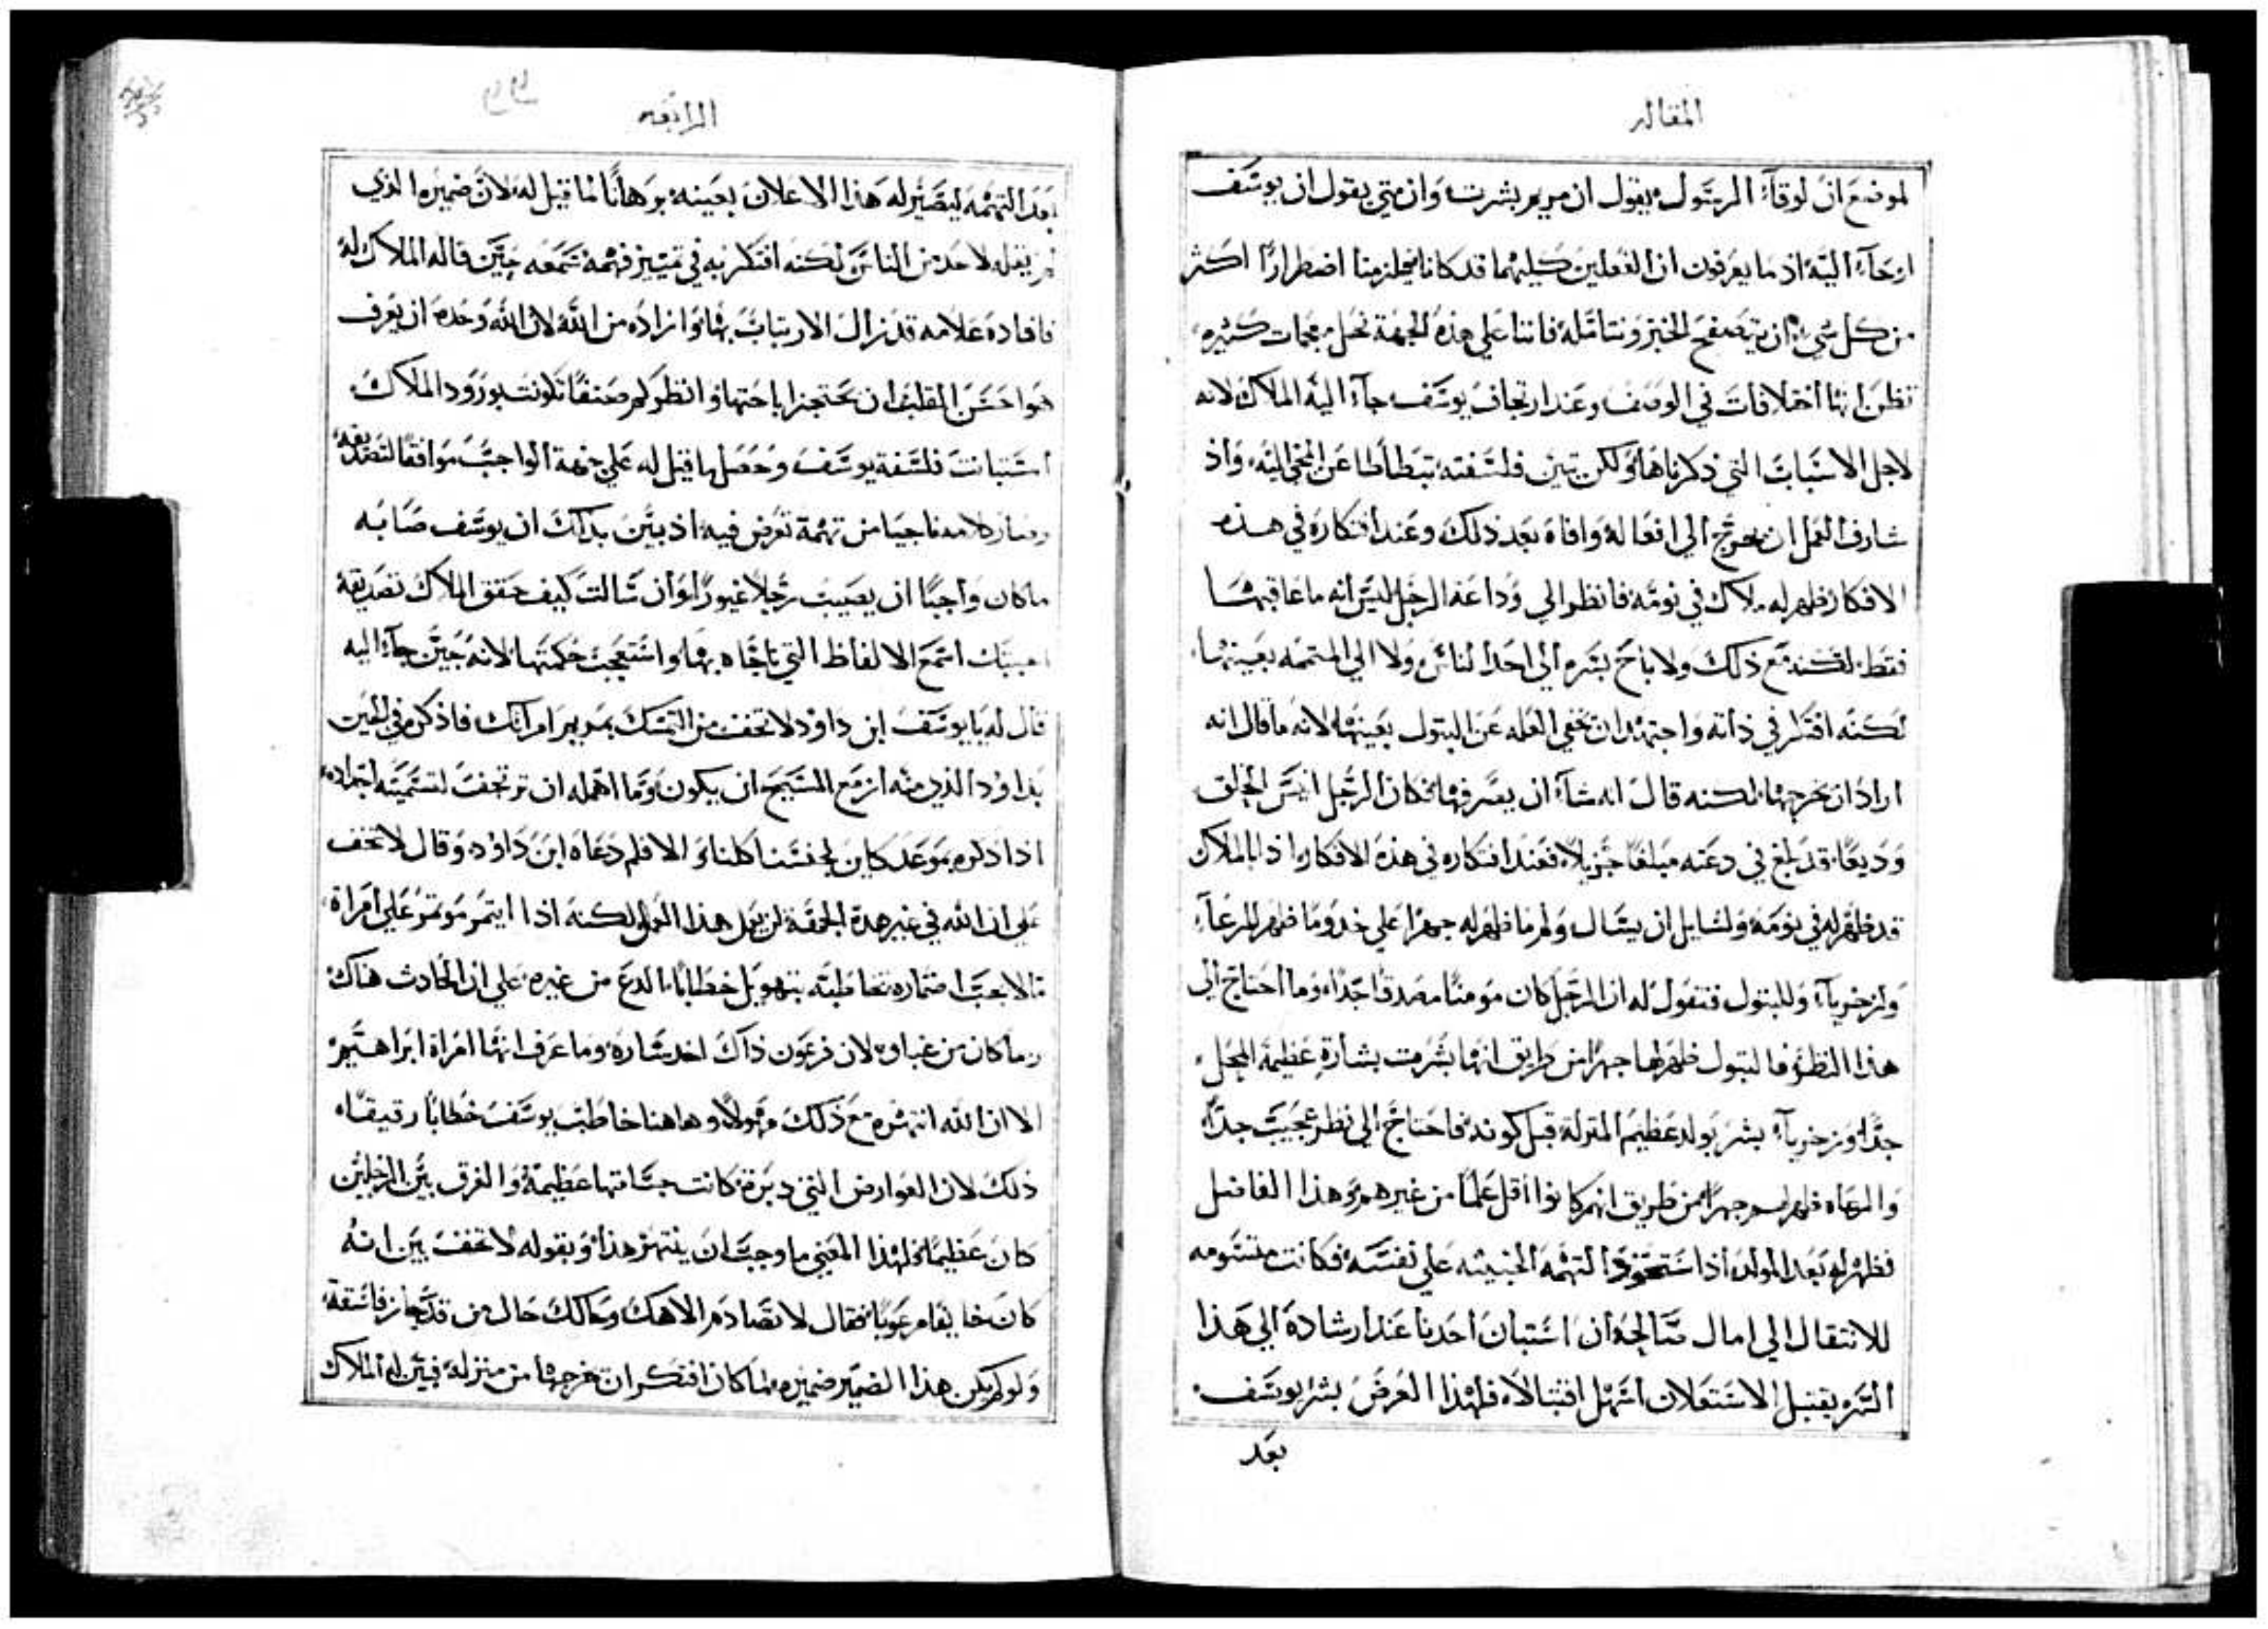 المقاله
لموضع ان لوقاء الرسول يقول ان مريم بشرت وان متي يقول ان يوسف
ارتحاء اليه اذ ما يعرفون ان الفعلين كليهما قد كانا فيلزمنا اضطرارًا اكثر
من كل شي ان نتصفح الخبر ونتامله فاننا علي هذه الجهة نحل معجمات كثيره
تظن انها اختلافات في الوصف وعند ارتجاف يوسف جاء اليه الملاك لانه
لاجل الاسباب التي ذكرناها ولكن تبين فلسفته تبطاطا عن المجي اليه واذ
شارف العمل ان يخرج الي افعاله وافاه بعد ذلك وعند افتكاره في هذه
الافكار ظهر له ملاك في نومه فانظر الي وداعة الرجل ليس انه ما عاقبها
فقط لكنه مع ذلك ولا باح بسره الي احد الناس ولا الي المتهمه بعينها
لكنه افتكر في ذاته واجتهد ان يخفي العله عن البتول بعينها لانه ما قال انه
اراد ان يخرجها لكنه قال انه شاء ان يسرفها فكان الرجل انيس الخلق
وديعًا قد بلغ في دعته مبلغًا جزيلًا فعند افتكاره في هذه الافكار اذا بالملاك
قد ظهر له في نومه ولسايل ان يسال ولم ما ظهر له جهرًا علي حذو ما ظهر للرعاء
ولزخرياء وللبتول فنقول له ان الرجل كان مومنًا مصدقًا جدًا وما احتاج الي
هذا النظر فالبتول ظهر لها جهرًا من طريق انها بشرت بشارة عظيمة المحل
جدًا وزخرياء بشر بولد عظيم المنزلة قبل كونه فاحتاج الي نظر عجيب جدًا
والرعاه ظهر لهم جهرًا من طريق انهم كانوا اقل علمًا من غيرهم وهذا الفاضل
فظهر له بعد المولد اذ استحوذ التهمه الخبيثه علي نفسه فكانت متسومه
للانتقال الي امال صالحه ان استبان احدنا عند ارشاده الي هذا
السر يقتبل الاستعلان اسهل اقتبالًا فلهذا الغرض بشر يوسف
بعد
الرابعه
بعد التهمه ليصير له هذا الاعلان بعينه برهانًا لما قيل له لان ضميره الذي
لم يقله لاحد من الناس لكنه افتكر به في تمييز فهمه سمعه حين قاله الملاك له
فافاده علامه قد زال الارتياب بها وانزاده من الله لان الله وحده ان يعرف
هواجس القلب ان يحتجزا باحتها وانظر كم صنفًا تكونت بورود الملاك
استبانت فلسفة يوسف وحصل ما قيل له علي جهة الواجب موافقًا لتصديقه
وصار كلامه ناجيا من تهمة تعرض فيه اذ بين بذاك ان يوسف صابه
ما كان واجبًا ان يصيب رجلًا غيورًا وان سالت كيف حقق الملاك تصديقه
اجبتك اسمع الالفاظ التي ناجاه بها واستعجب حكمتها لانه حين جاء اليه
قال له يا يوسف ابن داود لا تخف من التمسك بمريم امراتك فاذكره في الحين
بداود الذي منه ازمع المسيح ان يكون وما اهمله ان يرتجف لتسميته اجداده
اذا ذكره بموعد كاين لجنسنا كلنا والا فلم دعاه ابن داود وقال لا تخف
علي ان الله في غير هذة الجهة لن يعمل هذا العمل لكنه اذا ايتمر موتمر علي امراة
رما كان من غباوه لان فرعون ذاك اخذ ساره وما عرف انها امراة ابراهيم
الا ان الله انتهره مع ذلك وهوله وهاهنا خاطب يوسف خطابًا رقيقًا
ذلك لان العوارض التي دبرة كانت جسامتها عظيمة والفرق بين الرجلين
كان عظيمًا فلهذا المعني ما وجب ان ينتهر هذا وبقوله لا تخف بين انه
كان خايفًا مرعوبًا فقال لا تصادم الاهك وحالك حال من قد حاز فاسقة
ولو لم يكن هذا الضمير ضميره لما كان افتكر ان يخرجها من منزله فبين له الملاك